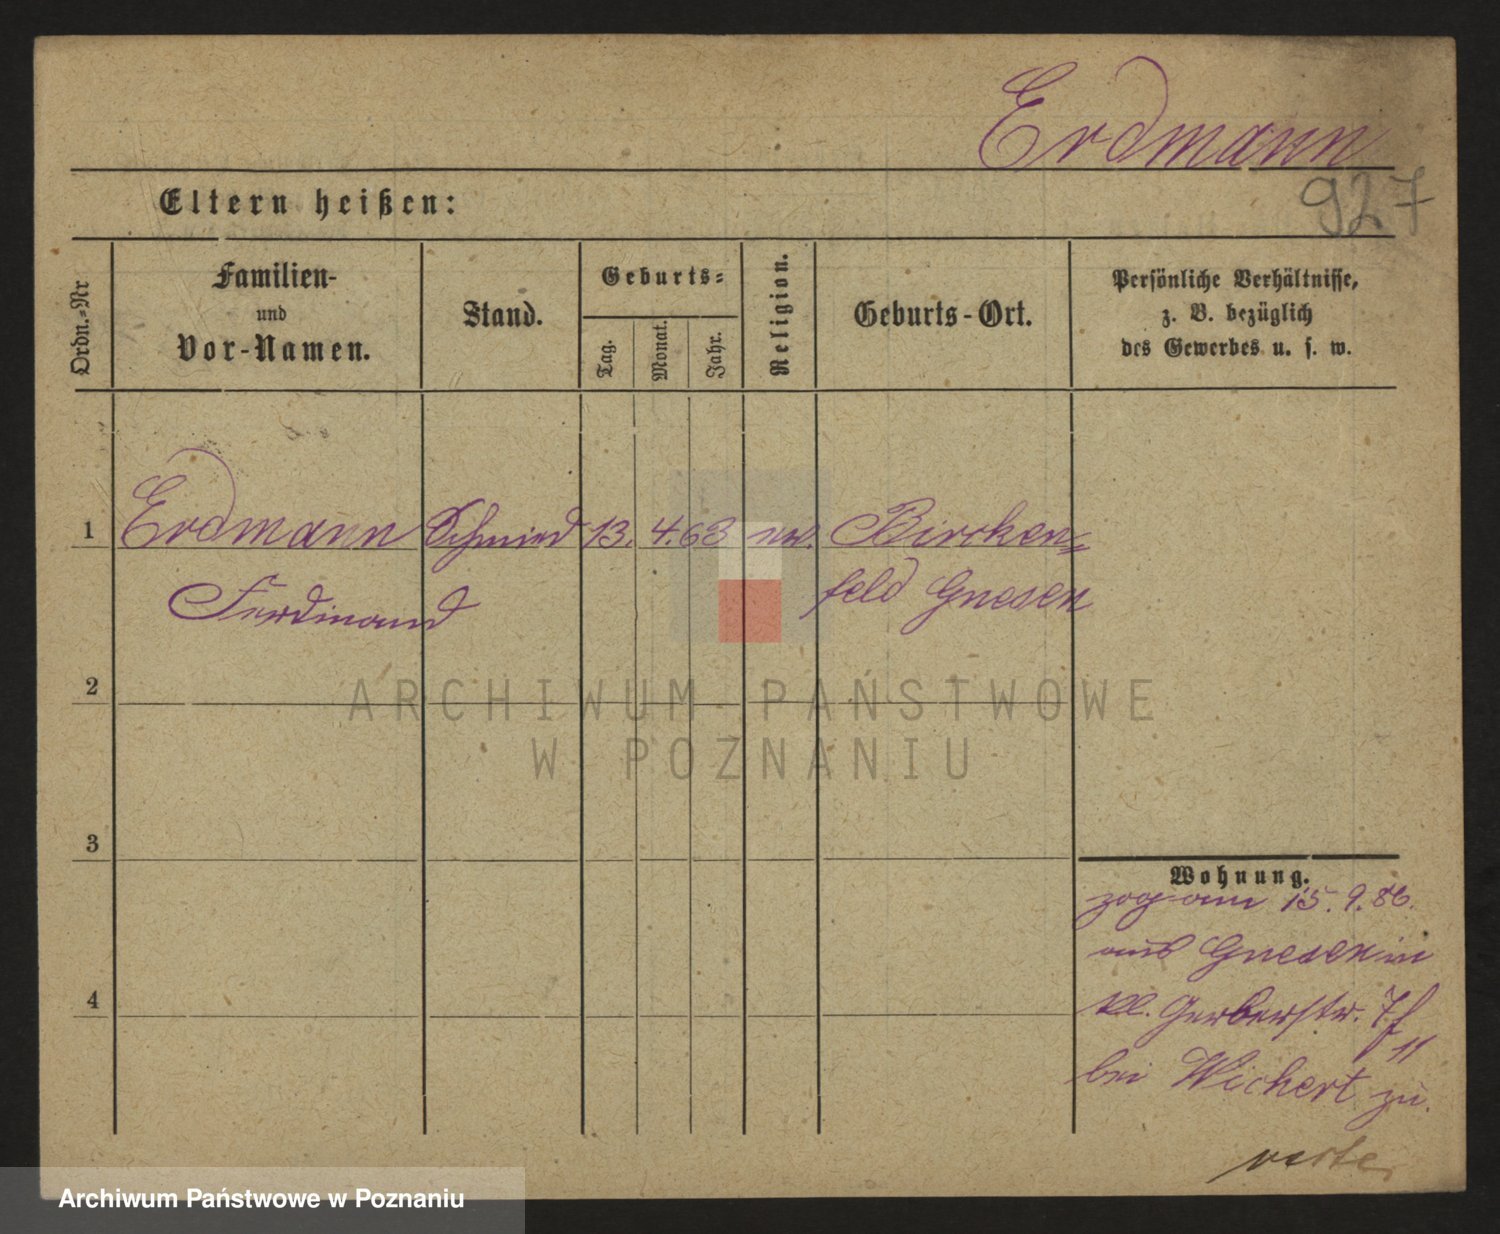 Erdmann
927
Eltern heißen:
Ordn.-Nr
Familien-
und
Vor-Namen.
Stand.
Geburts-
Tag.
Monat.
Jahr.
Religion.
Geburts-Ort.
Persönliche Verhältnisse,
z. B. bezüglich
des Gewerbes u. s. w.
1 Erdmann Schmied 13. 4. 63 ev. Bircken-
Ferdinand feld Gnesen
2
3
4
Wohnung.
zog am 15. 9. 86.
aus Gnesen in
kl. Gerberstr. 7
11
bei Wichert zu.
ARCHIWUM PAŃSTWOWE
W POZNANIU
Archiwum Państwowe w Poznaniu